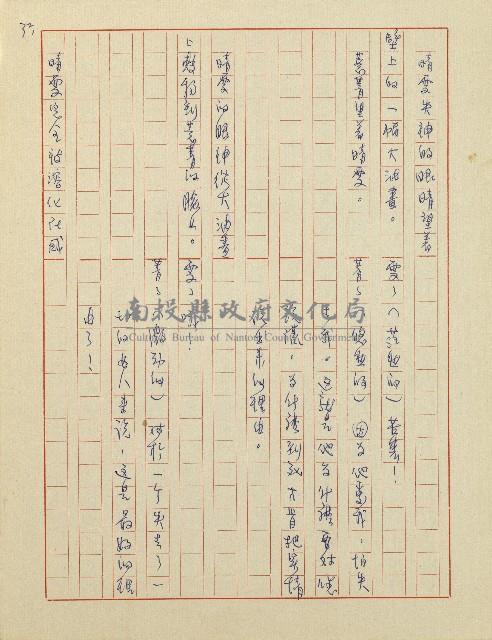 37
晴雯失神的眼睛望着
壁上的一幅大油畫。
蕙菁望着晴雯。
晴雯的眼神從大油畫
上移到蕙菁的臉上。
晴雯完全被溶化在感
雯:(茫然的)菁表!
菁:(悠然的)因為他愛我,怕失
去我。這就是他為什麼要對你
說謊,為什麼到死不肯把眾情
說出來的理由。
雯:唔!
菁:(激動的)對於一个失去了一
切的女人來說,這是最好的理
由了!
南投縣政府文化局
Cultural Bureau of Nantou County Government